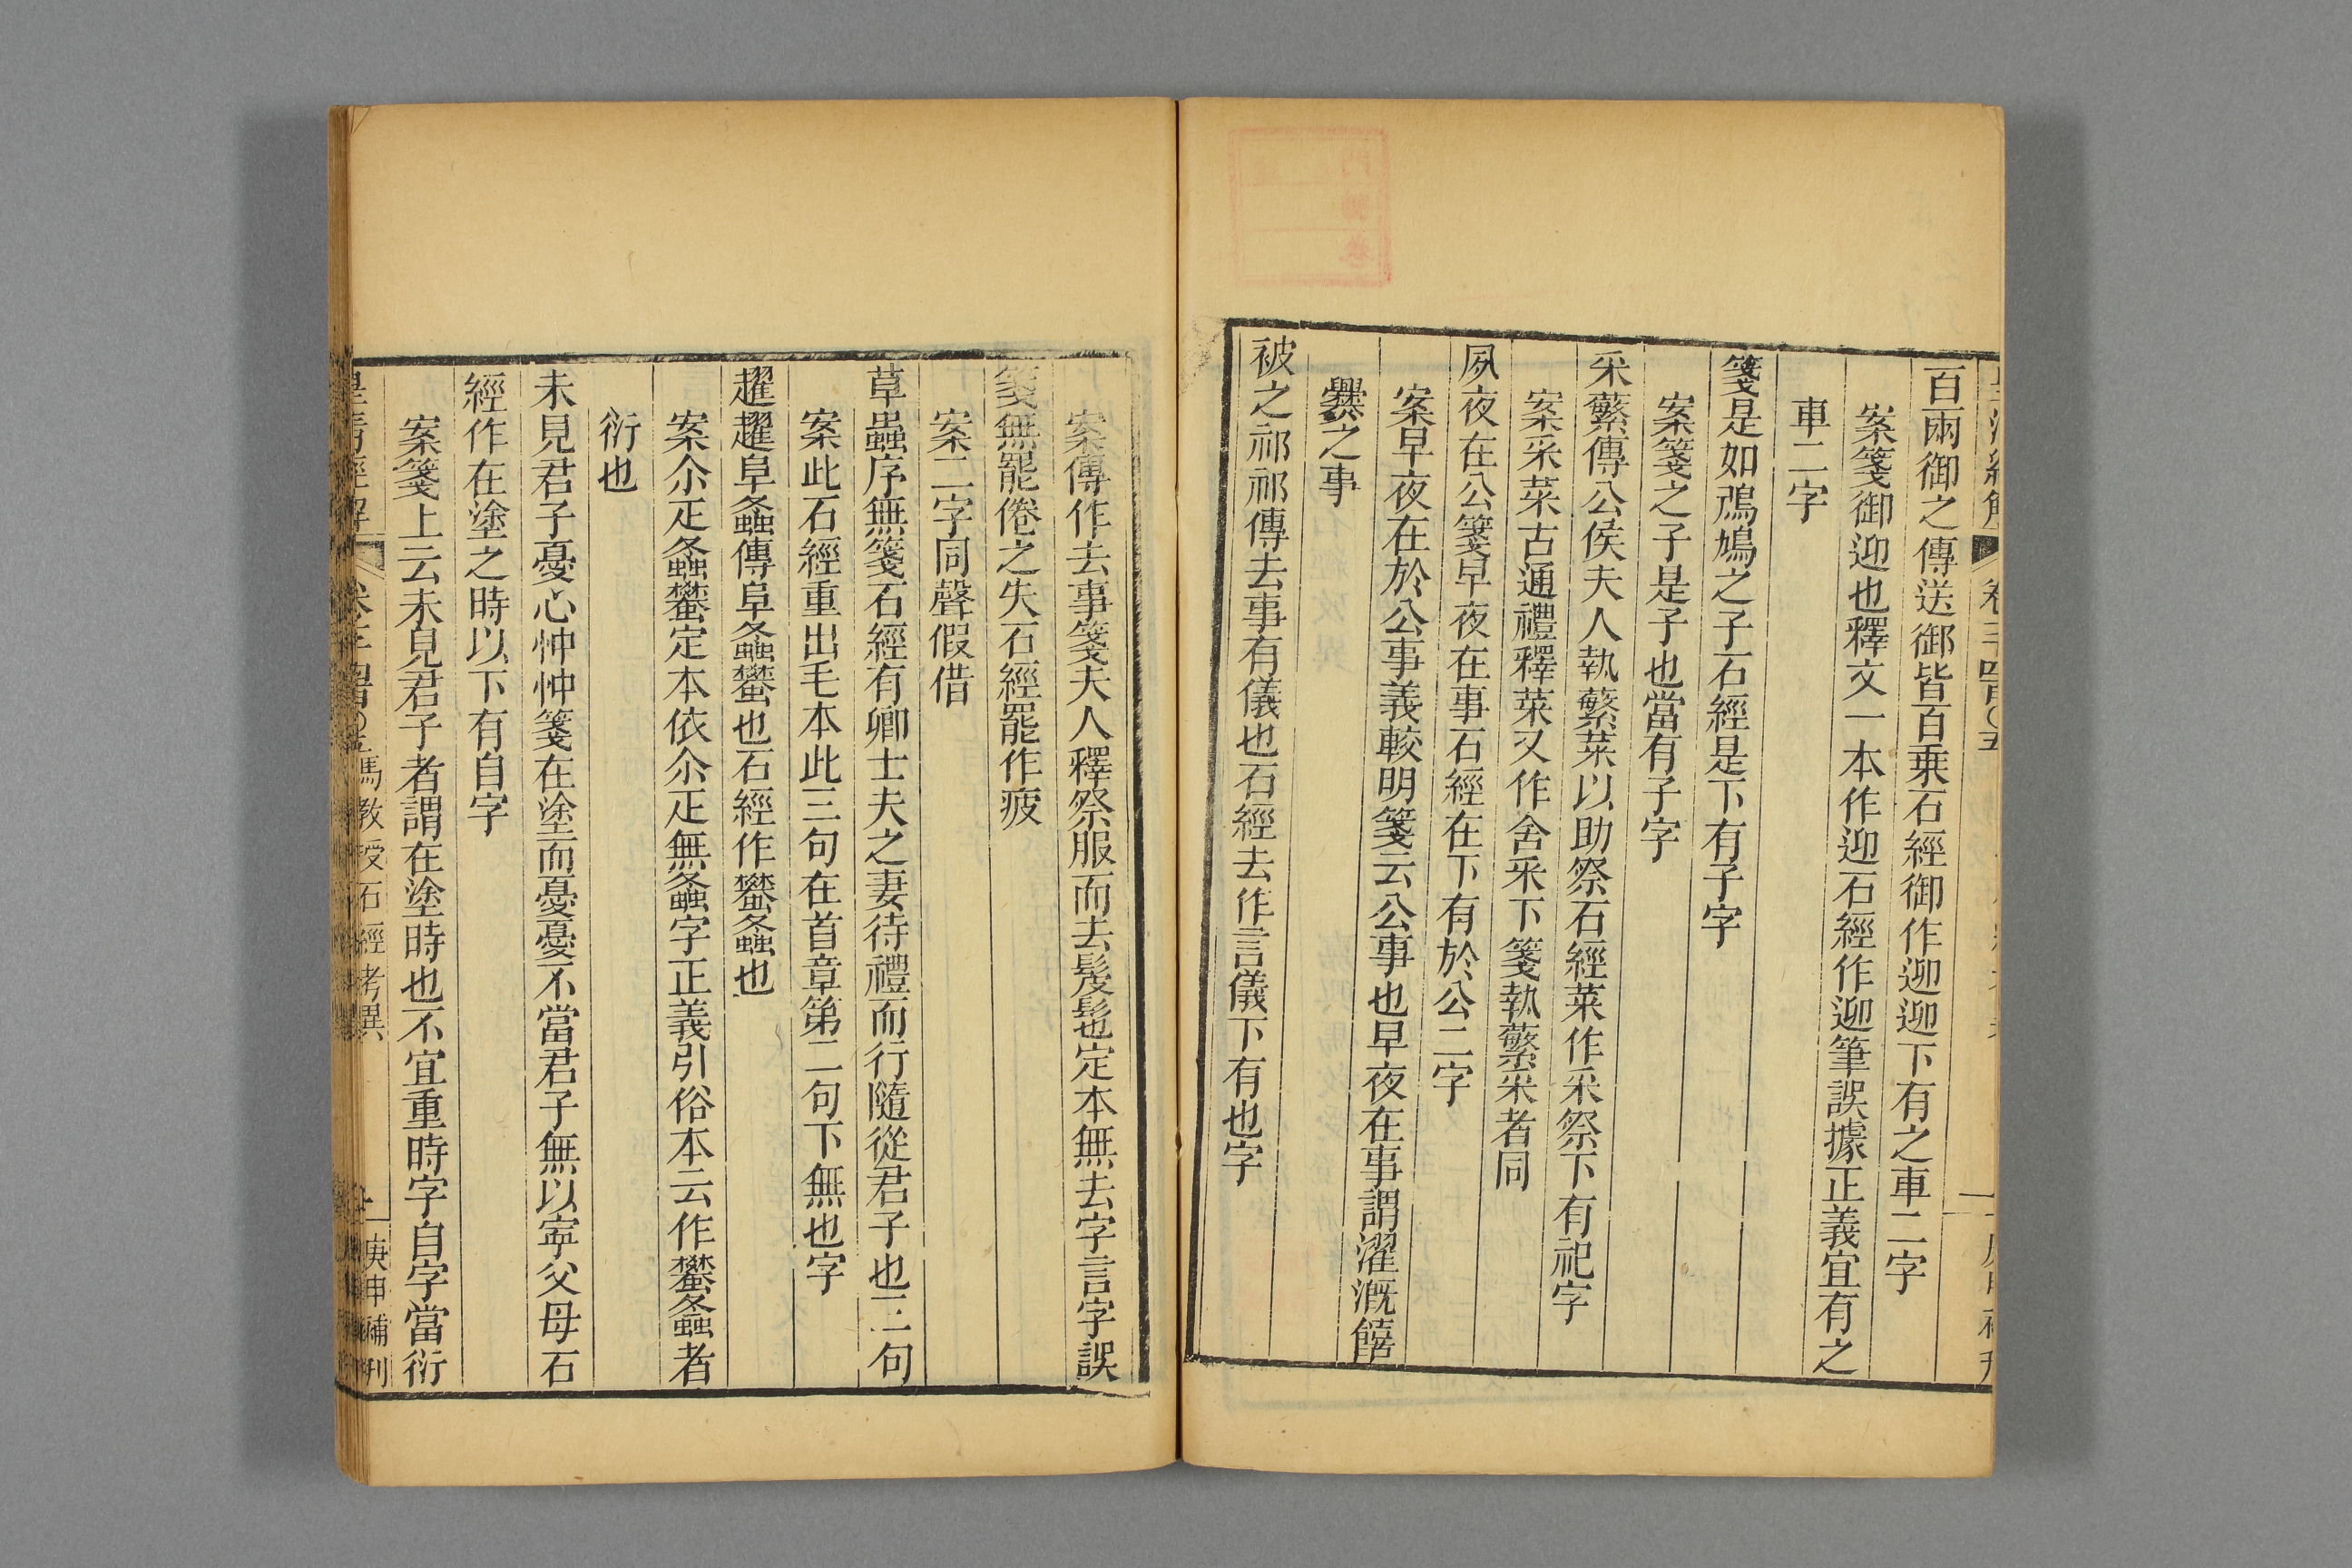 百兩御之傳送御皆百乘石經御作迎迎下有之車二字
案箋御迎也釋文一本作迎石經作迎筆誤據正義宜有之
車二字
箋是如鳲鳩之子石經是下有子字
案箋之子是子也當有子字
采蘩傳公侯夫人執蘩菜以助祭石經菜作采祭下有祀字
案采菜古通禮釋菜又作舍采下箋執蘩采者同
夙夜在公箋早夜在事石經在下有於公二字
案早夜在於公事義較明箋云公事也早夜在事謂濯溉饎
爨之事
被之祁祁傳去事有儀也石經去作言儀下有也字
案傳作去事箋夫人釋祭服而去髲髢也定本無去字言字誤
箋無罷倦之失石經罷作疲
案二字同聲假借
草蟲序無箋石經有卿士夫之妻待禮而行隨從君子也三句
案此石經重出毛本此三句在首章第二句下無也字
趯趯阜螽傳阜螽蠜也石經作蠜螽也
案尒疋螽蠜定本依尒疋無螽字正義引俗本云作蠜螽者
衍也
未見君子憂心忡忡箋在塗而憂憂不當君子無以寧父母石
經作在塗之時以下有自字
案箋上云未見君子者謂在塗時也不宜重時字自字當衍
皇清經解 馮教授石經考異 庚申補刊